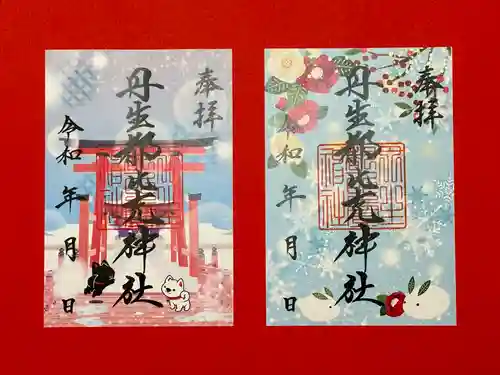 奉拝
丹生都比売神社
令和 年 月 日
奉拝
丹生都比売神社
令和 年 月 日